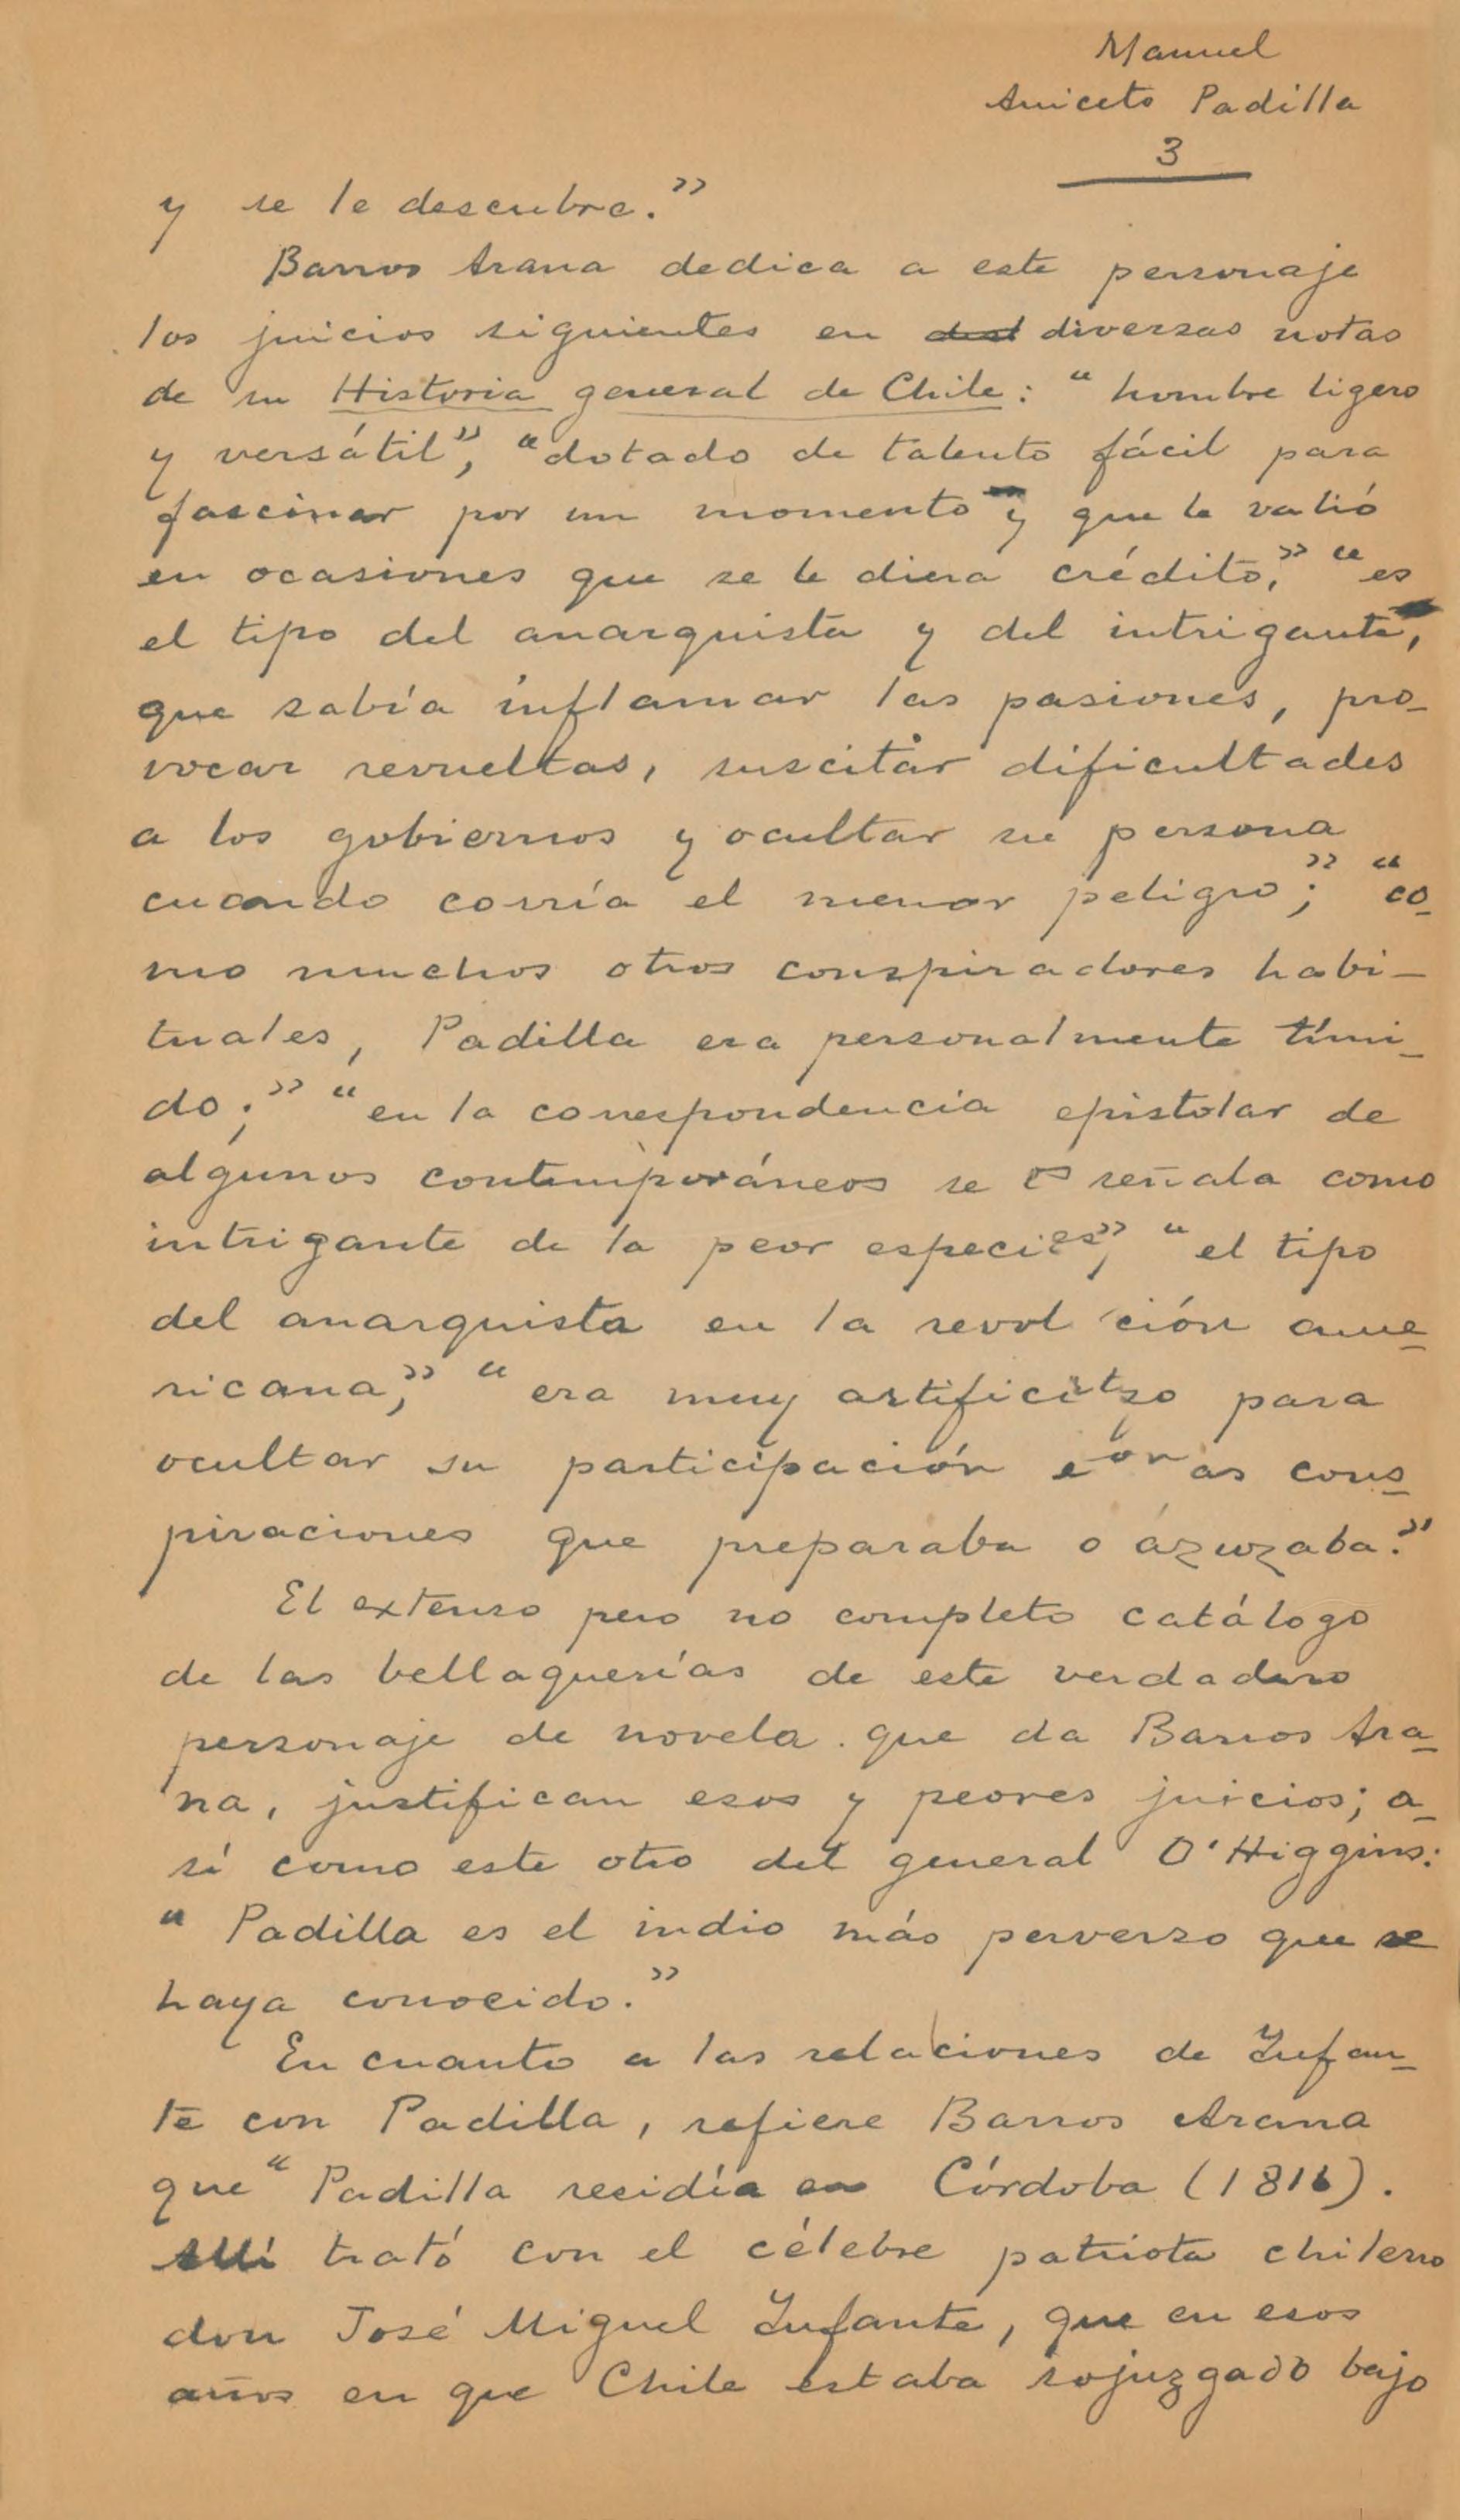 Manuel
Aniceto Padilla
3
y se le descubre."
Barros Arana dedica a este personaje
los juicios siguientes en diversas notas
de su Historia general de Chile: "hombre ligero
y versátil", "dotado de talento fácil para
fascinar por un momento y que le valió
en ocasiones que se le diera crédito," "es
el tipo del anarquista y del intrigante,
que sabía inflamar las pasiones, pro-
vocar revueltas, suscitar dificultades
a los gobiernos y ocultar su persona
cuando corría el menor peligro;" "co-
mo muchos otros conspiradores habi-
tuales, Padilla era personalmente tími-
do;" "en la correspondencia epistolar de
algunos contemporáneos se señala como
intrigante de la peor especie", "el tipo
del anarquista en la revol ción ame-
ricana," "era muy para
ocultar su participación cons-
piraciones que preparaba o azuzaba."
El extenso pero no completo catálogo
de las bellaquerías de este verdadero
personaje de novela que da Barros Ara-
na, justifican esos y peores juicios; a-
sí como este otro del general O'Higgins:
"Padilla es el indio más perverso que se
haya conocido."
En cuanto a las relaciones de Infan-
te con Padilla, refiere Barros Arana
que "Padilla residía en Córdoba (1816).
Allí trató con el célebre patriota chileno
don José Miguel Infante, que en esos
años en que Chile estaba sojuzgado bajo